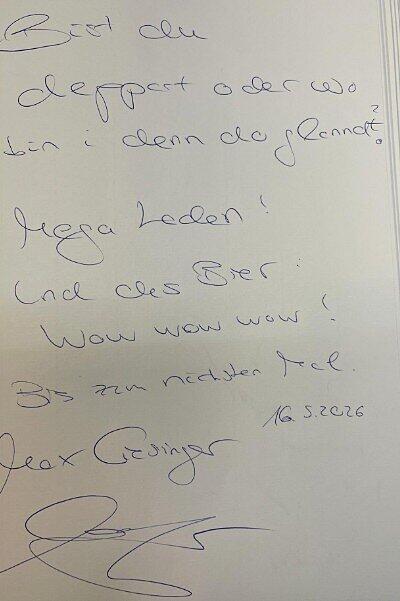 Bist du
deppart oder wo
bin i denn do glandt?
Mega Laden!
Und des Bier:
Wow wow wow!
Bis zum nächsten Mal.
16.5.2026
Max Giesinger